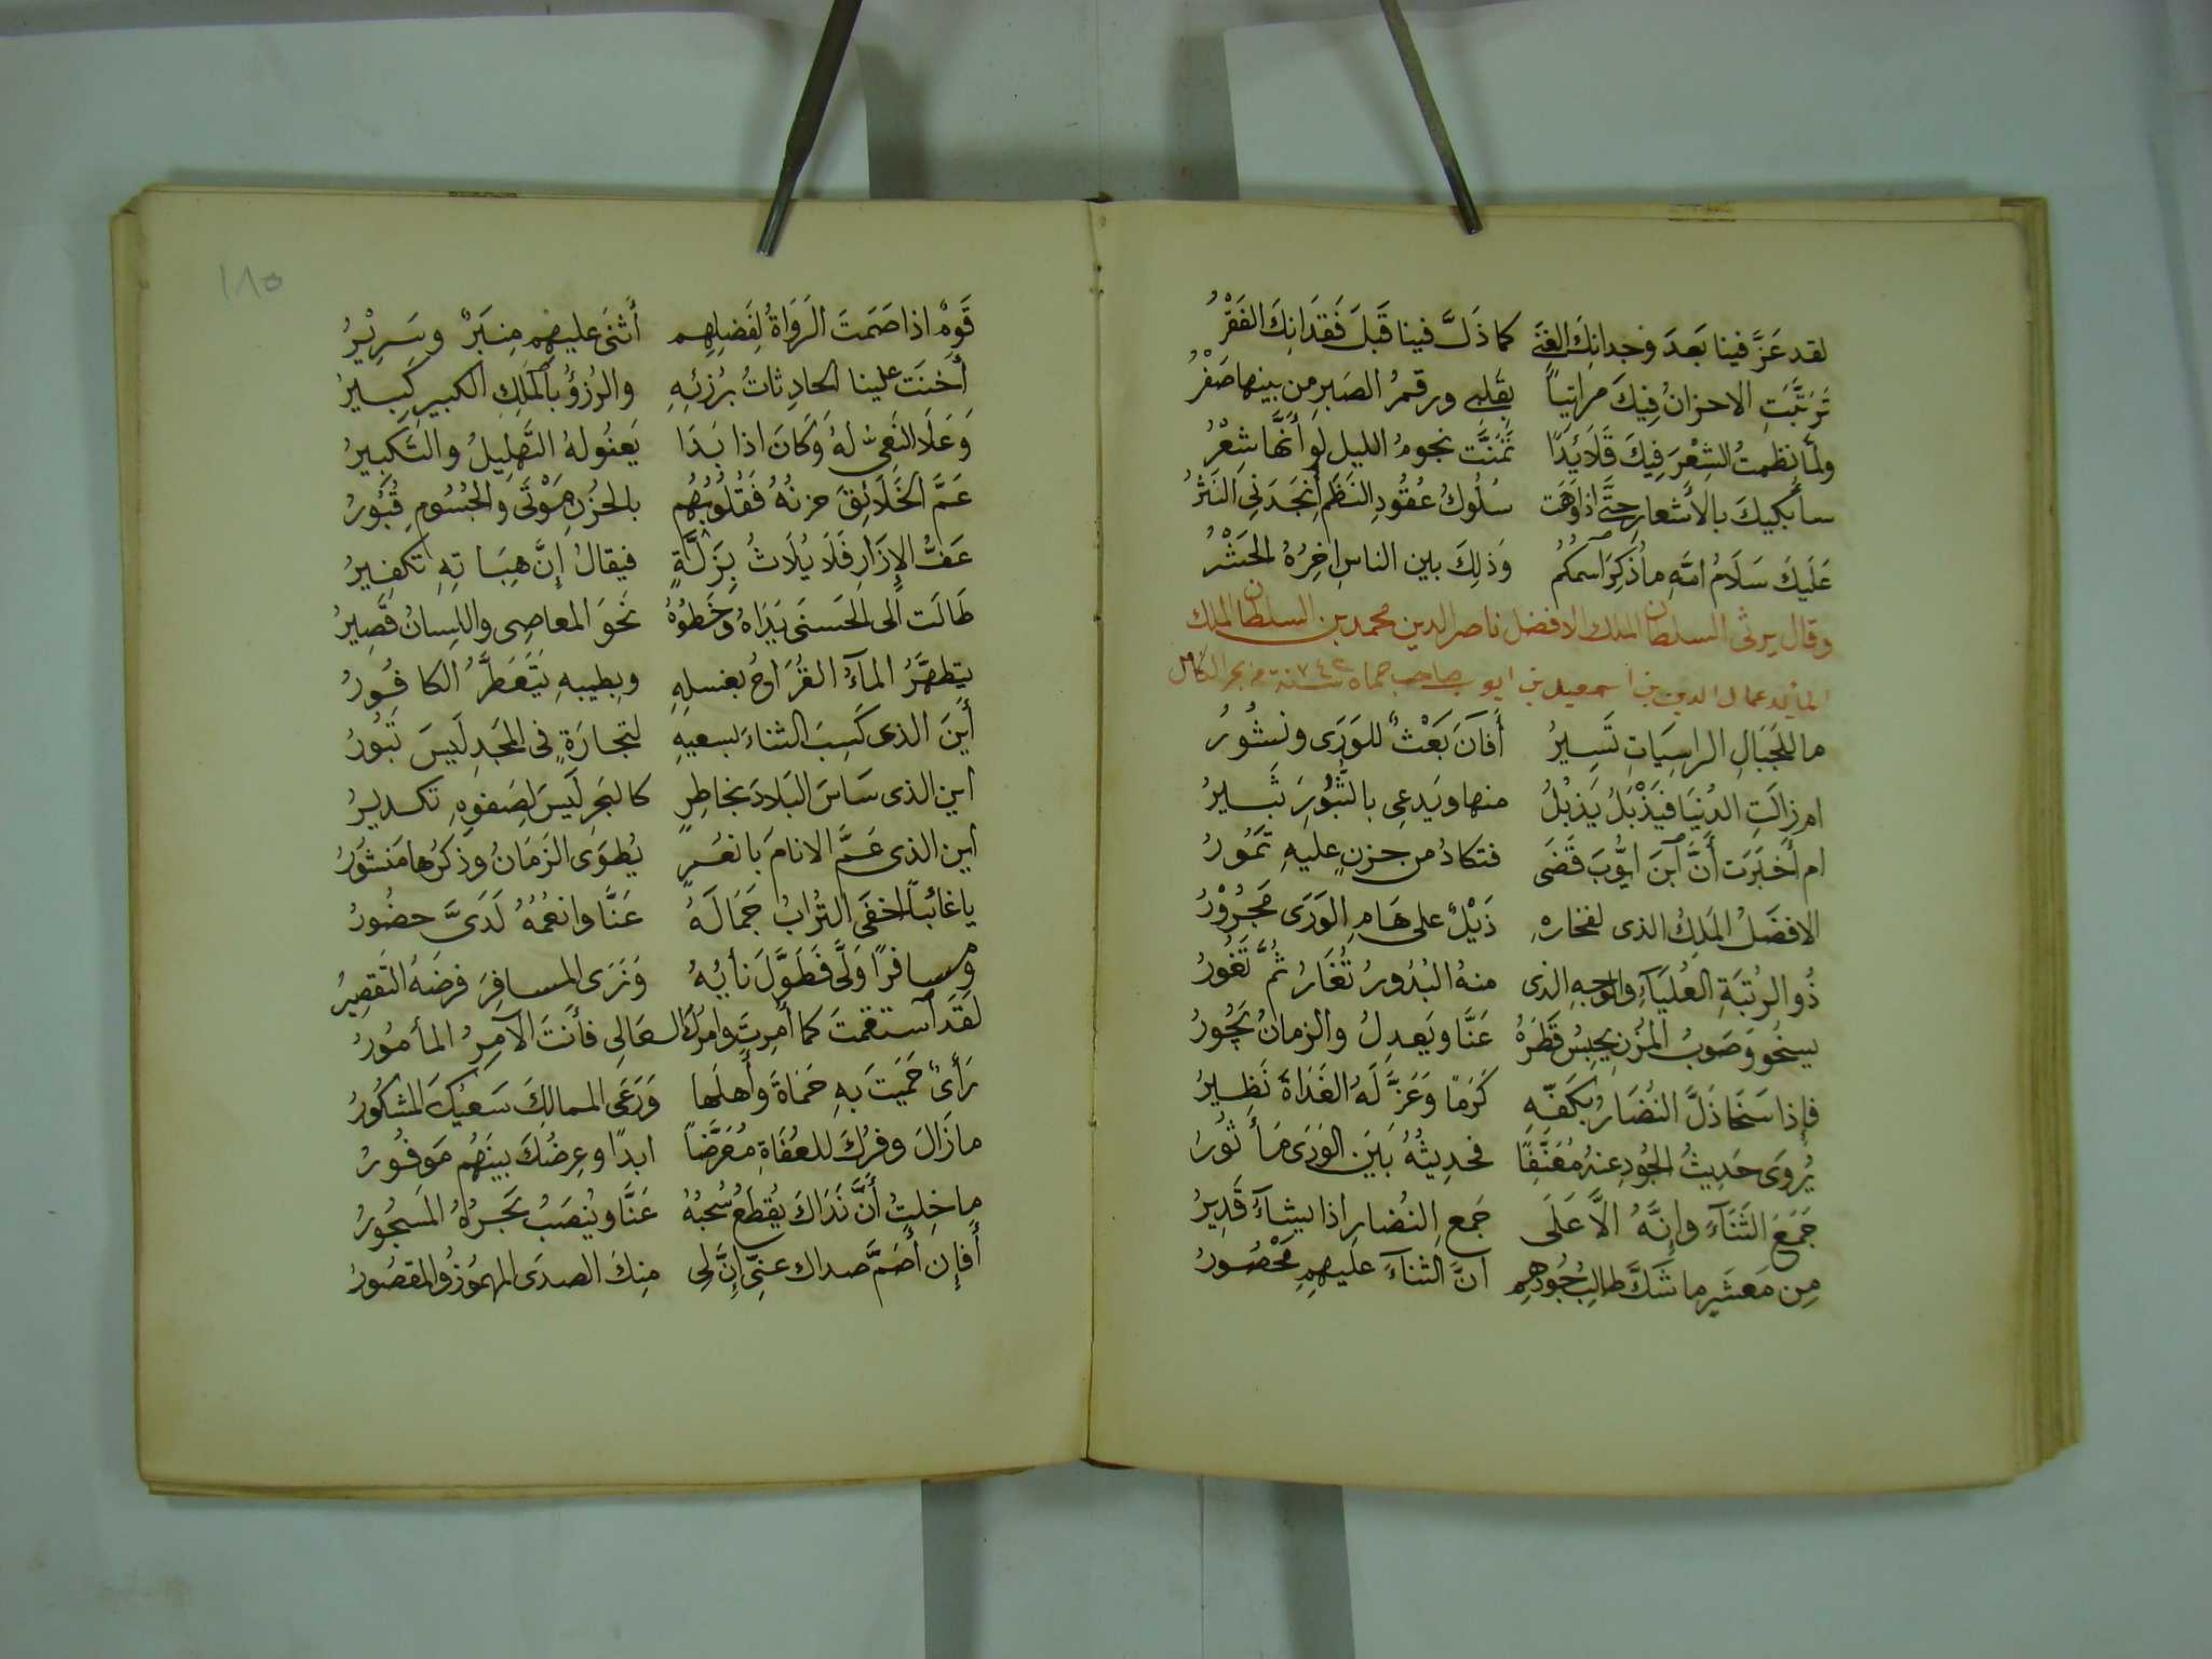 لقد عَزَّ فينا بَعدَ وجدانِكَ الغِنَى كما ذَلَّ فينا قَبلَ فَقدَانِكَ الفَقْرُ
تَرَتَّبَتِ الاحزانُ فِيكَ مراتِباً بِقَلبِى ورقمُ الصَبرِ مِن بينها صَفْرُ
ولمّا نظمتُ الشِعْرَ فِيكَ قَلَائِدًا تمَنَّت نجومُ الليلِ لَو أَنَّهَا شِعْرُ
سأبكيكَ بالأشعارِ حتَّى اذا وَهَت سُلُوكُ عُقُودِ النَظمِ أنجَدَنِى النَثْرُ
عَلَيكَ سَلَامُ اللهِ ما ذُكِرَ اسمُكُم وَذلِكَ بين الناسِ اخِرُهُ الحَشْرُ
وقال يرثى السلطان الملك الافضل ناصر الدين محمد بن السلطان الملك
المايد عماد الدين بن اسمعيل بن ايوب صاحب حماه سنة ٧٤٢ من بحر الكامل
ما للجِبَالِ الراسِيَاتِ تَسِيرُ أفَآنَ بَعْثٌ للوَرَى ونُشُورُ
ام زالَتِ الدُنيَا فَيَذْبُلُ يَذبُلُ منها ويَدعِى بالثُّبُورِ ثَبِيرُ
ام أَخبَرَت أَنَّ ابنَ ايُّوبَ قَضَى فتكادُ من حزنٍ عليهِ تمُورُ
الافضَلُ المَلِكُ الذى لفخارهِ ذَيْلٌ على هَامِ الوَرَى مَجْرُوْرُ
ذُو الرُتبَةِ العُليَآءِ والوَجهِ الذى منهُ البُدُورُ تُغَارُ ثُمَّ تَغُورُ
يسخُو وَصَوبُ المُزنِ يحبِسُ قَطرَهُ عَنَّا ويَعدِلُ والزمانُ يجُورُ
فإذا سَخَا ذَلَّ النُضَارُ بكَفّهِ كَرَمًا وَعَزَّ لَهُ الغَدَاةَ نَظِيرُ
يُروَى حَدِيثُ الجُودِ عنهُ مُعَنعَنًا فحدِيثُهُ بَينَ الوَرَى مَأثُورُ
جَمَعَ الثَنَآءَ وإِنَّهُ الَّا عَلَى جَمعِ النُضارِ اذا يشآءُ قَدِيرُ
مِن مَعشَرٍ ما شَكَّ طالِبُ جُودهِم انَّ الثنآءَ عليهِمِ مَحْصُورُ
١٨٥
قَومٌ اذا صَمَتَ الرَوَاةُ لِفَضلِهِم أثنَى عليهِم مِنبَرٌ وسَرِيْرُ
أخنَت علينا الحادِثاتُ بِرُزئِهِ والرُزؤُ بالمَلِكِ الكبيرِ كبيرُ
وَعَلَا النَعِىُّ لهُ وَكَانَ اذا بَدَا يَعنُو لهُ التَهلِيلُ والتَكبِيرُ
عَمَّ الخَلَائِقَ حزنُهُ فَقُلُوبُهُم بالحُزنِ مَوْتَى والجُسُومِ قُبُورُ
عَفُّ الإزَارِ فَلَا يُلَاثُ بِزَلَّةٍ فيقالُ إِنَّ هِبَاتِهِ تكفِيرُ
طَالَت الى الحَسنَى يَدَاهُ وخَطوُهُ نَحوَ المعاصِى واللِسانُ قَصِيرُ
يتطهّرُ المآءُ القُرَاحُ بغسلِهِ وبِطيبهِ يَتَعَطَّرُ الكافُورُ
أَينَ الذى كَسِبَ الثناءَ بسعيهِ لتجارَةٍ فى المجَدِ لَيسَ تَبُورُ
اين الذى سَاسَ البَلادَ بخاطِرٍ كالبَحرِ لَيسَ لِصَفوِهِ تكديرُ
أين الذى عَمَّ الانامَ بانعُمٍ يُطوَى الزَمَانُ وذكرُها مَنشُورُ
ياغائبًا اخفَى التُرَابُ جَمَالَهُ عَنَّا وانعُمُهُ لَدَىَّ حضُورُ
ومسافرًا وَلَّى فَطَوَّلَ نَأيُهُ وَنَرَى المسافِرَ فرضَهُ التَقصِيرُ
لقد آستقمتَ كما أُمِرتَ وامرُكَ العَالِى فأنتَ الآمِرُ المأمُورُ
رَأىٌ حَمَيتَ بهِ حَمَاةَ وأهلَها وَرَعَى الممالِكَ سَعيُكَ المشكُورُ
ما زَالَ وفرُكَ للعُفَاةِ مُعَرَّضًا ابدًا وعِرضُكَ بينَهُم مَوفُورُ
ما خِلتُ أَنَّ نَدَاكَ يُقطَعُ سُحبُهُ عَنَّا ويُنضَبُ بَحرُهُ المَسجُورُ
أفإن أصَمَّ صداك عنِّى إِنَّ لِى مِنكَ الصدَى المهمُوزُ والمقصُورُ